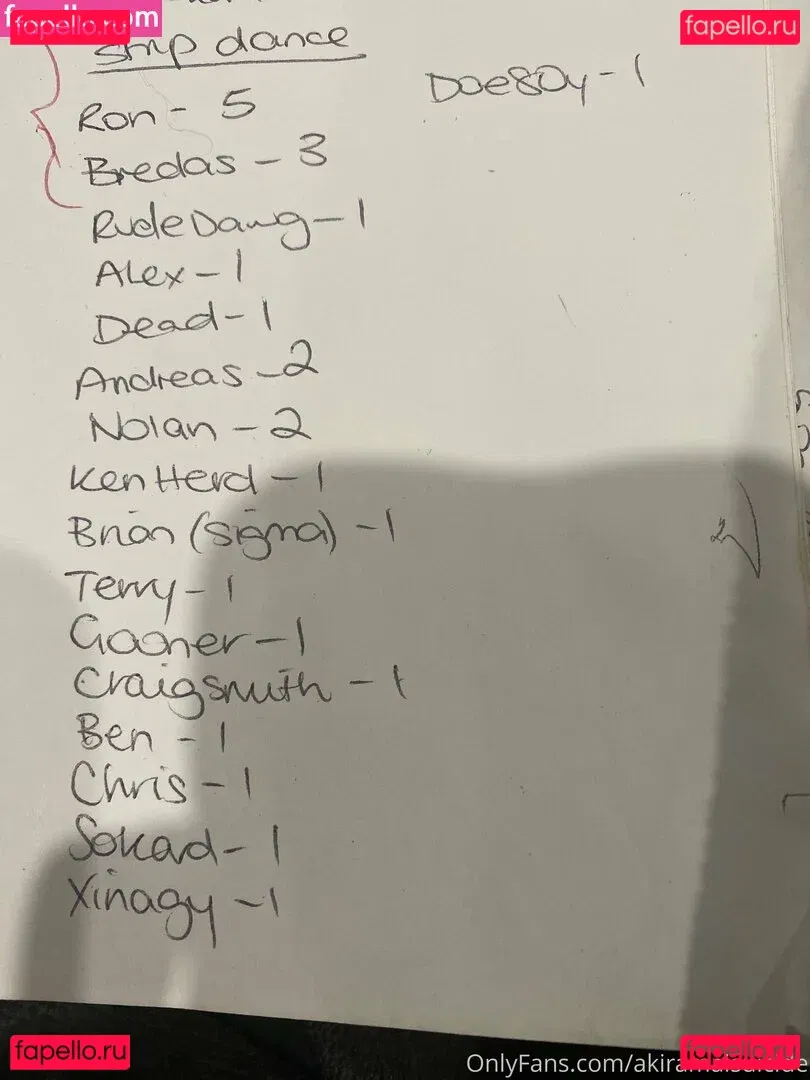 fapello.ru
fapello.ru
strip dance
Doe80y - 1
Ron - 5
Bredas - 3
RudeDawg - 1
Alex - 1
Dead - 1
Andreas - 2
Nolan - 2
Ken Herd - 1
Brian (sigma) - 1
2
Terry - 1
Craigsmith - 1
Ben - 1
Chris - 1
Sokad - 1
Xinagy - 1
fapello.ru
fapello.ru